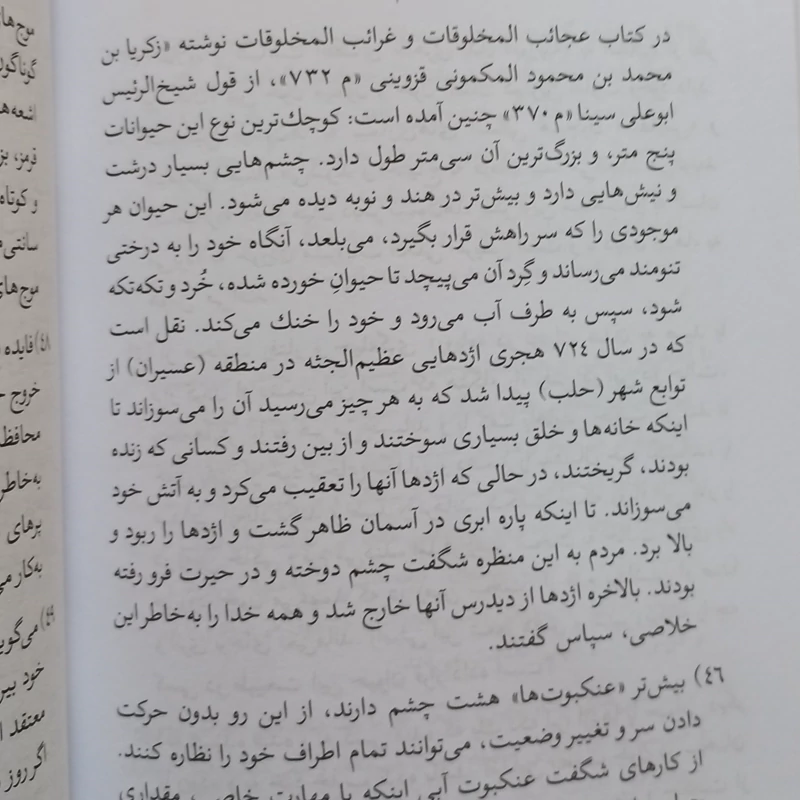 در کتاب عجائب المخلوقات و غرائب المخلوقات نوشته «زکریا بن
محمد بن محمود المکمونی قزوینی «م ٧٣٢»، از قول شیخ‌الرئیس
ابوعلی سینا «م ٣٧٠» چنین آمده است: کوچك‌ترین نوع این حیوانات
پنج متر، و بزرگ‌ترین آن سی‌متر طول دارد. چشم‌هایی بسیار درشت
و نیش‌هایی دارد و بیش‌تر در هند و نوبه دیده می‌شود. این حیوان هر
موجودی را که سر راهش قرار بگیرد، می‌بلعد، آنگاه خود را به درختی
تنومند می‌رساند و گِرد آن می‌پیچد تا حیوانِ خورده شده، خُرد و تکه‌تکه
شود، سپس به طرف آب می‌رود و خود را خنك می‌کند. نقل است
که در سال ٧٢٤ هجری اژدهایی عظیم‌الجثه در منطقه (عسیران) از
توابع شهر (حلب) پیدا شد که به هر چیز می‌رسید آن را می‌سوزاند تا
اینکه خانه‌ها و خلق بسیاری سوختند و از بین رفتند و کسانی که زنده
بودند، گریختند، در حالی که اژدها آنها را تعقیب می‌کرد و به آتش خود
می‌سوزاند. تا اینکه پاره ابری در آسمان ظاهر گشت و اژدها را ربود و
بالا برد. مردم به این منظره شگفت چشم دوخته و در حیرت فرو رفته
بودند. بالاخره اژدها از دیدرس آنها خارج شد و همه خدا را به‌خاطر این
خلاصی، سپاس گفتند.
٤٦) بیش‌تر «عنکبوت‌ها» هشت چشم دارند، از این رو بدون حرکت
دادن سر و تغییر وضعیت، می‌توانند تمام اطراف خود را نظاره کنند.
از کارهای شگفت عنکبوت آبی اینکه با مهارت خاصی، مقداری
موج‌ها
گوناگون
اشعه‌ه
قرمز، بز
و کوتاه
سانتی‌م
موج‌های
٤٨) فایده
خروج
محافظ
به‌خاطر
پرهای
به‌کار می
٤٩) می‌گوی
خود بیر
معتقد ا
اگر روز